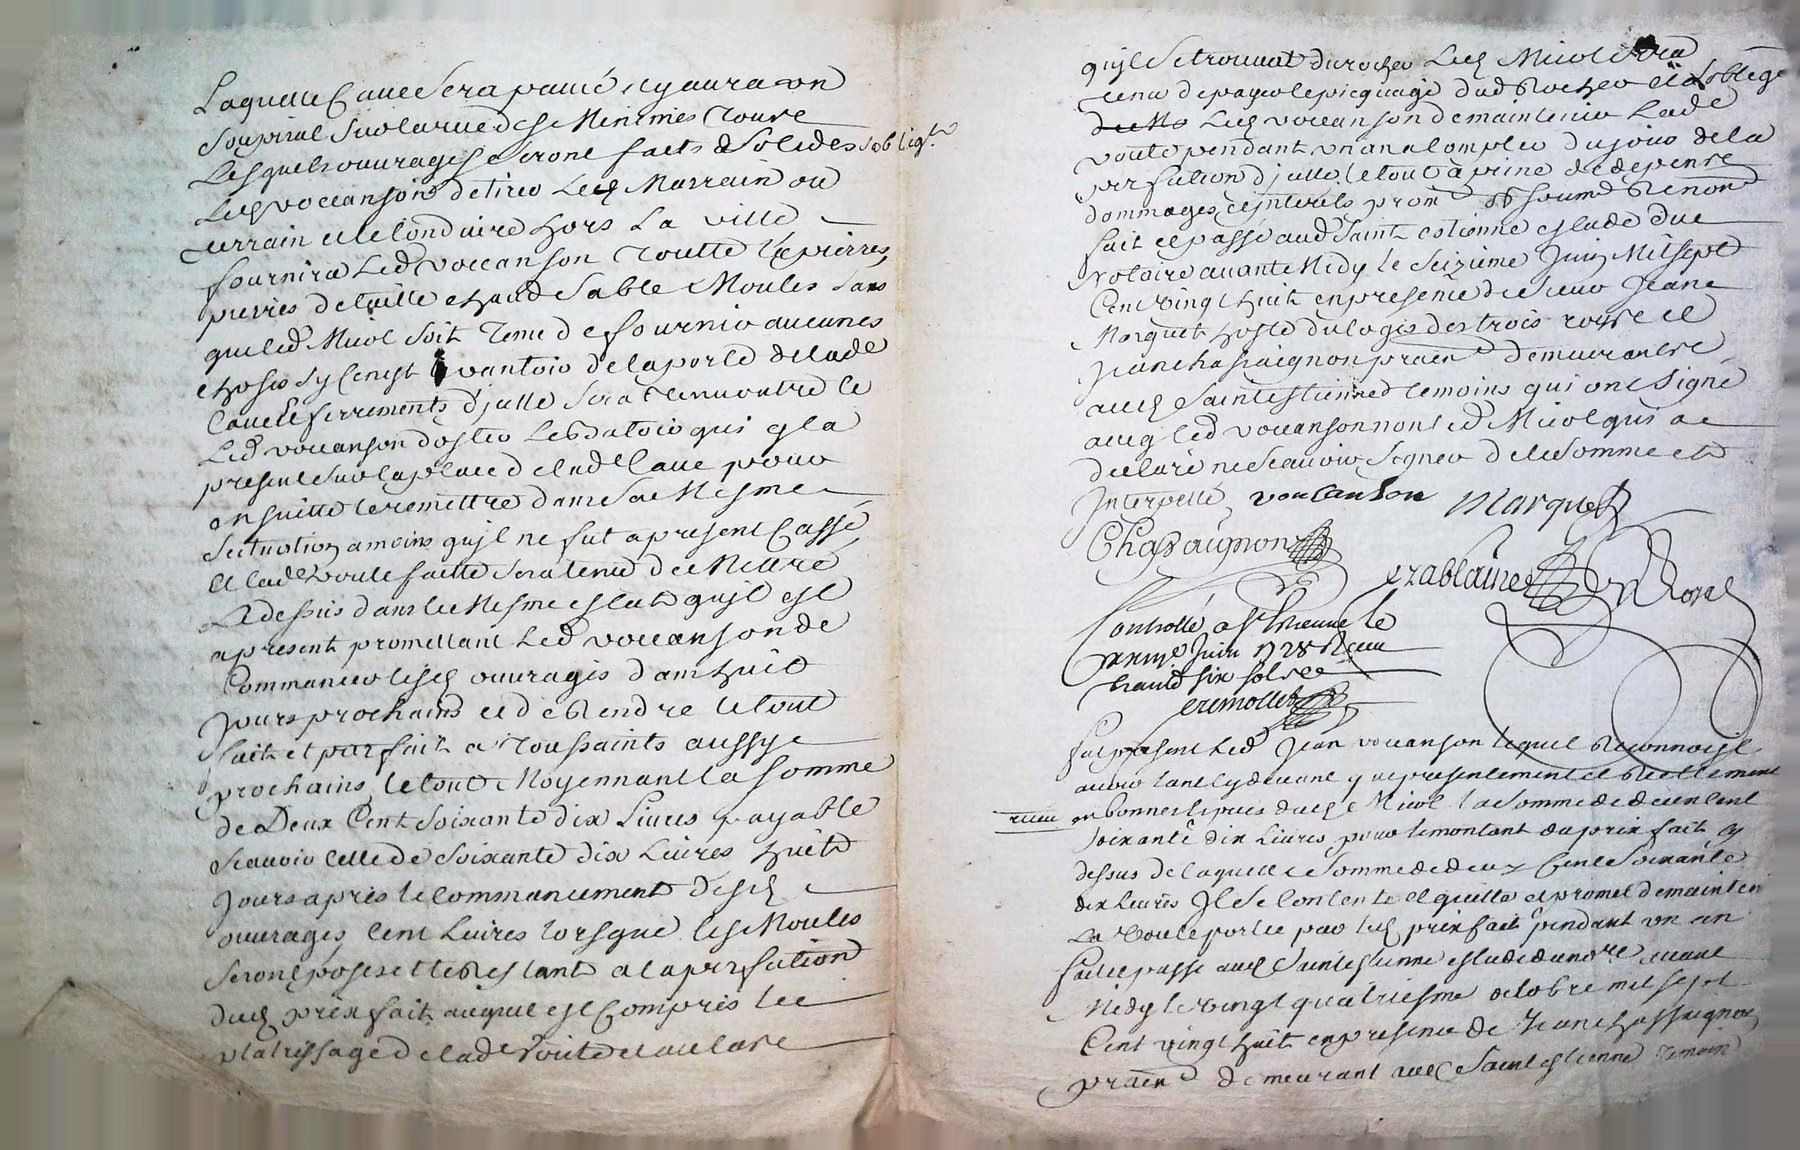 Laquelle Cave sera pavée et y aura un
soupiral sur la rue des Minimes toute
Lesquels ouvrages seront faits & solides s'oblig.t
Led vocanson de tirer Led Marrain ou
terrain et le Conduire hors La ville
fournira Led vocanson toutte Les pierres,
pierres de taille chaud sable Moules sans
que led Micol soit tenu de fournir aucunes
choses sy Cenest vantoir de la porte de lade
Cave & ferrements d'jcelle sera
Led vocanson d'oster Les qui est a
present sur la place de lade Cave pour
ensuitte le remettre dans sa Mesme
scituation a moins qu'jl ne fut a present Cassé
et lade voute faitte sera tenu de Mettre
Le dessus dans le Mesme estat qu'jl est
apresent promettant Led vocanson de
Commancer lesd ouvrages dans huit
jours prochains et de Rendre le tout
fait et parfait a toussaints aussy
prochains, le tout Moyennant la somme
de Deux Cent soixante dix Livres payable
scavoir celle de soixante dix Livres huit
jours apres le commancement desd
ouvrages, cent Livres lorsque les Moules
seront poses et le Restant a la perfation
dud prix fait auquel est Compris le
platrissage de lade voute et au
qu'jl se trouvat du rocher Led Micol sera
tenu de payer le picquage dud Rocher et s'oblege
Led vocanson de maintenir Lade
voute pendant un an a Compter du jour de la
perfation d'jcelle, le tout a peine de depense
dommages et jnterets prom ob soum Renon
fait et passé aud Saint estienne estude due
Notaire avant Midy le seizieme Juin Mil sept
Cent vingt huit en presence de sieur Jean
Marquet hoste du logis des trois roys et
Jean chassaignon praen demeurant
aud Saint estienne temoins qui ont signé
avec led vocanson non led Micol qui a
declaré ne scavoir signer de le somme et
Interpellé, voucanson Marquet
Chassaignon
ezablaine Royal
Controllé a St Etienne le
Juin 1728 Receu
six sols
cremollet
fut present Led Jean vocanson lequel Reconnoist
avoir tant cy devant que presentement et Reellement
receu en bonnes especes dud Micol la somme de deux cent
soixante dix Livres pour le montant du prix fait cy
dessus de laquelle somme de deux Cent soixante
dix Livres Jl se Contente et quitte et promet de mainteni
La voute portée par led prix fait pendant un an
fait et passé aud Saint estienne estude du nore avant
Midy le vingt quatriesme octobre mil sept
Cent vingt huit en presence de Jean chassaignon
praen demeurant aud Saint estienne temoin